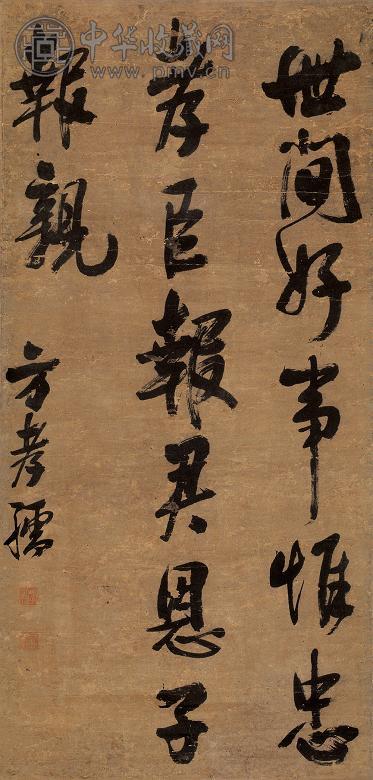 世间好事惟忠
孝臣報君恩子
報親
方孝孺
中华收藏网
www.pmv.cn